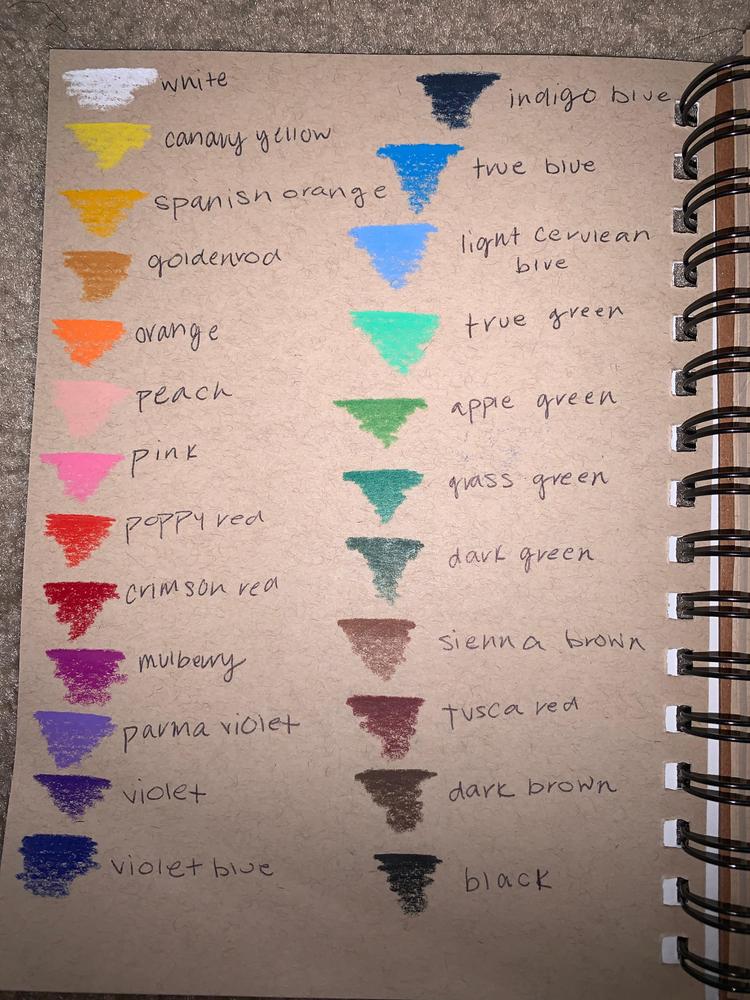 white
canary yellow
spanish orange
goldenrod
orange
peach
pink
poppy red
crimson red
mulberry
parma violet
violet
violet blue
indigo blue
true blue
light cerulean
blue
true green
apple green
grass green
dark green
sienna brown
tusca red
dark brown
black